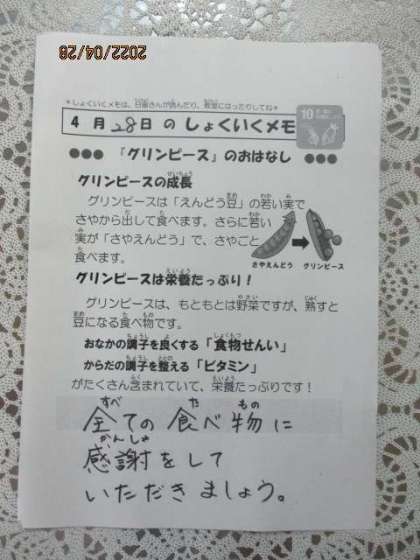 2022/04/28
＊しょくいくメモは、日直さんが読んだり、教室にはったりしてね＊
4月28日のしょくいくメモ
10
●●● 「グリンピース」のおはなし ●●●
グリンピースの成長
グリンピースは「えんどう豆」の若い実で
さやから出して食べます。さらに若い
実が「さやえんどう」で、さやごと
食べます。
さやえんどう グリンピース
グリンピースは栄養たっぷり！
グリンピースは、もともとは野菜ですが、熟すと
豆になる食べ物です。
おなかの調子を良くする「食物せんい」
からだの調子を整える「ビタミン」
がたくさん含まれていて、栄養たっぷりです！
全ての食べ物に
感謝をして
いただきましょう。